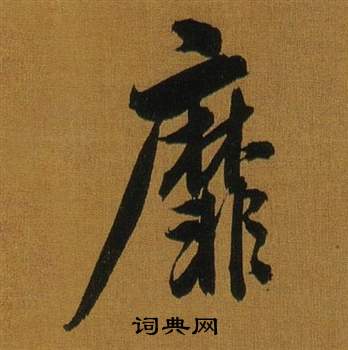 靡
词典网